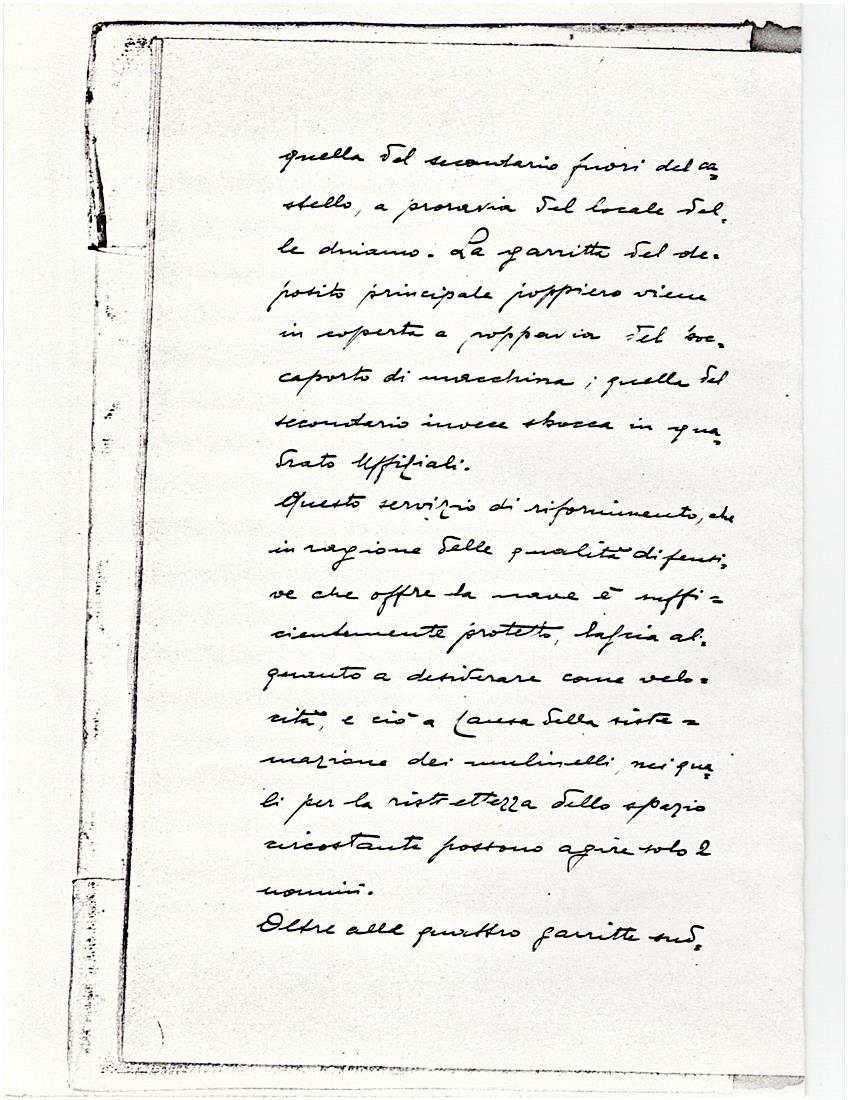 quella del secondario fuori del ca=
stello, a proravia del locale del=
le dinamo. La garritta del de=
posito principale poppiero viene
in coperta a poppavia del boc=
caporto di macchina; quella del
secondario invece sbocca in qua=
drato Uffiziali.
Questo servizio di rifornimento, che
in ragione delle qualità difensi=
ve che offre la nave è suffi=
cientemente protetto, lascia al=
quanto a desiderare come velo=
cità, e ciò a causa della siste=
mazione dei mulinelli, nei qua=
li per la ristrettezza dello spazio
circostante possono agire solo 2
uomini.
Oltre alle quattro garritte sud=